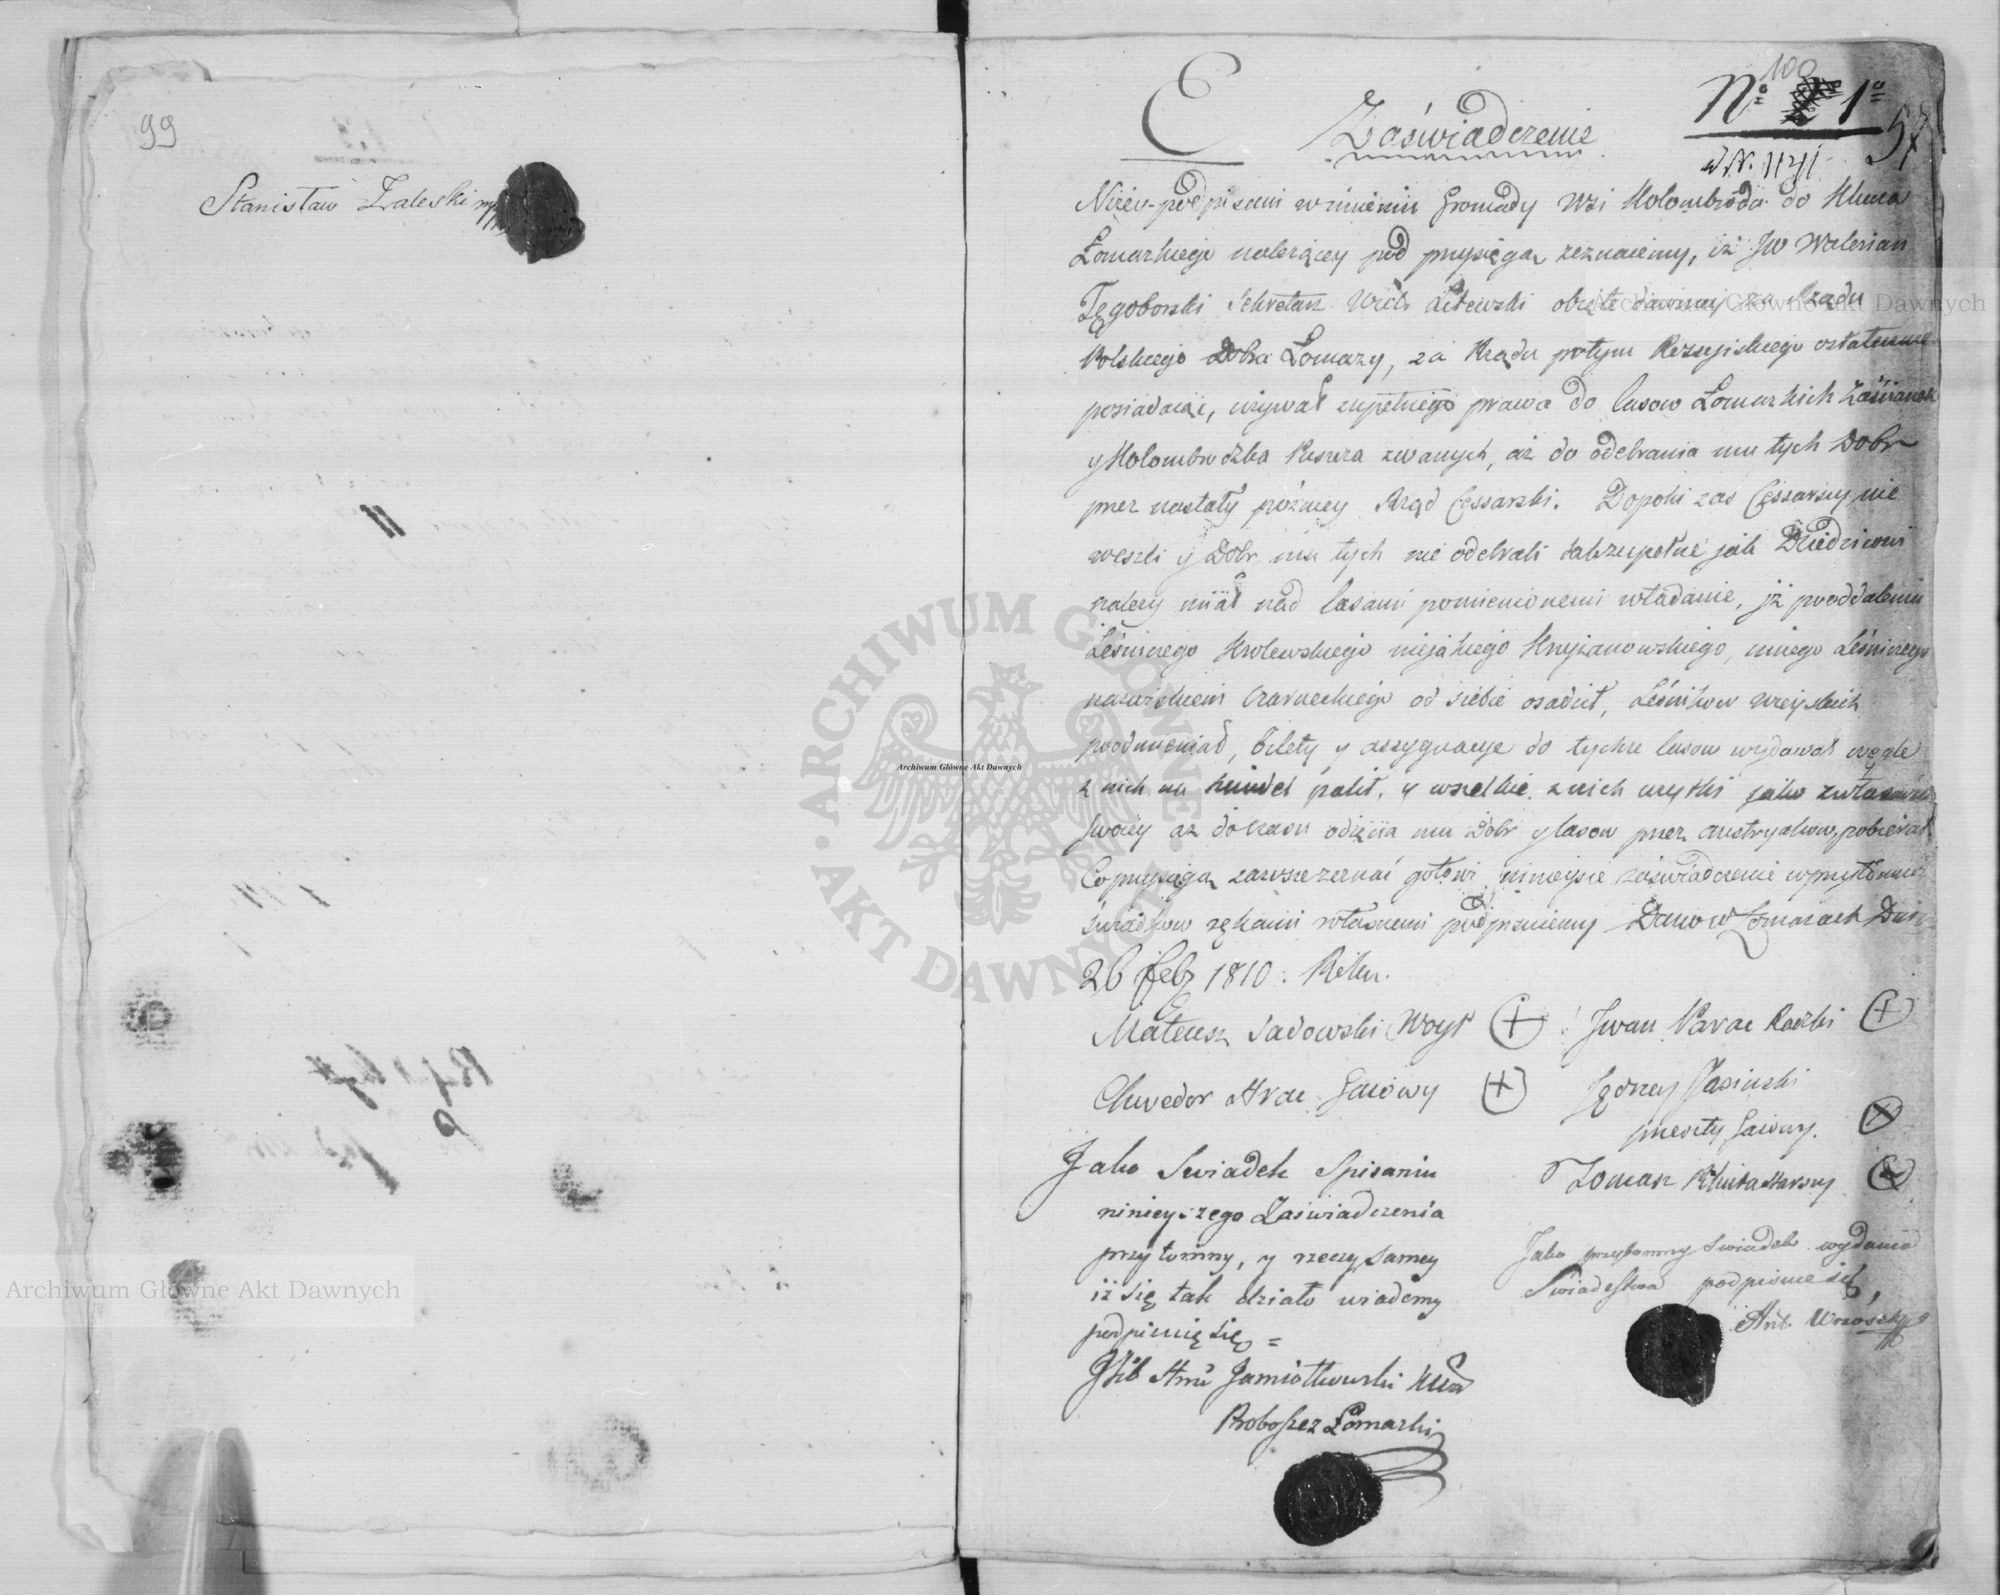 99
Stanisław Zaleski mp
E
Zaświadczenie
100
No 1o
57
d N. 1141
Niżey podpisani w imieniu Gromady Wsi Kolombroda do Klucza
Łomazkiego należącey pod przysięgą zeznaiemy, iż JW Walerian
Tęgoborski Sekretarz Litewski objęte dawniey za Rządu
Polskiego Dobra Łomazy, za Rządu potym Rossyiskiego ostatecznie
posiadaiąc, używał zupełnego prawa do lasow Łomazkich Zaścianek
y Kolombrodzka Puszcza zwanych, aż do odebrania mu tych Dobr
przez nastały pózniey Rząd Cessarski. Dopoki zas Cessarscy nie
weszli y Dobr mu tych nie odebrali tak zupełne jak Dziedzicowi
należy miał nad lasami pomienionemi władanie, jż po oddaleniu
Leśniczego Krolewskiego niejakiego Kryżanowskiego, innego Leśniczego
nazwiskiem Czarneckiego od siebie osadził, Leśnikow wieyskich
poodmieniał, bilety y assygnacye do tychże lasow wydawał węgle
z nich na handel palił, y wszelkie z nich użytki jako z własności
swoiey aż do czasu odięcia mu Dobr y lasow przez austryakow, pobierał
Co przysięgą zawsze zeznać gotowi ninieysze zaświadczenie w przytomnosci
świadkow rękami własnemi podpisuiemy Dano w Łomazach Dnia
26 Febr 1810. Roku.
Mateusz Sadowski Woyt +
Jwan Parac Radzki +
Chwedor Hrac Gaiowy +
Jędrzey Jasinski
przeszły Gaiowy. +
Tomasz +
Jako Swiadek Spisaniu
ninieyszego Zaświadczenia
przytomny, y rzeczy samey
iż się tak działo wiadomy
podpisuię się =
Jamiołkowski
Proboszcz Łomazki
Jako przytomny swiadek wydania
Swiadectwa podpisuie się,
Ant. Wrzosek mp
Archiwum Główne Akt Dawnych
Archiwum Główne Akt Dawnych
Archiwum Główne Akt Dawnych
ARCHIWUM GŁÓWNE AKT DAWNYCH